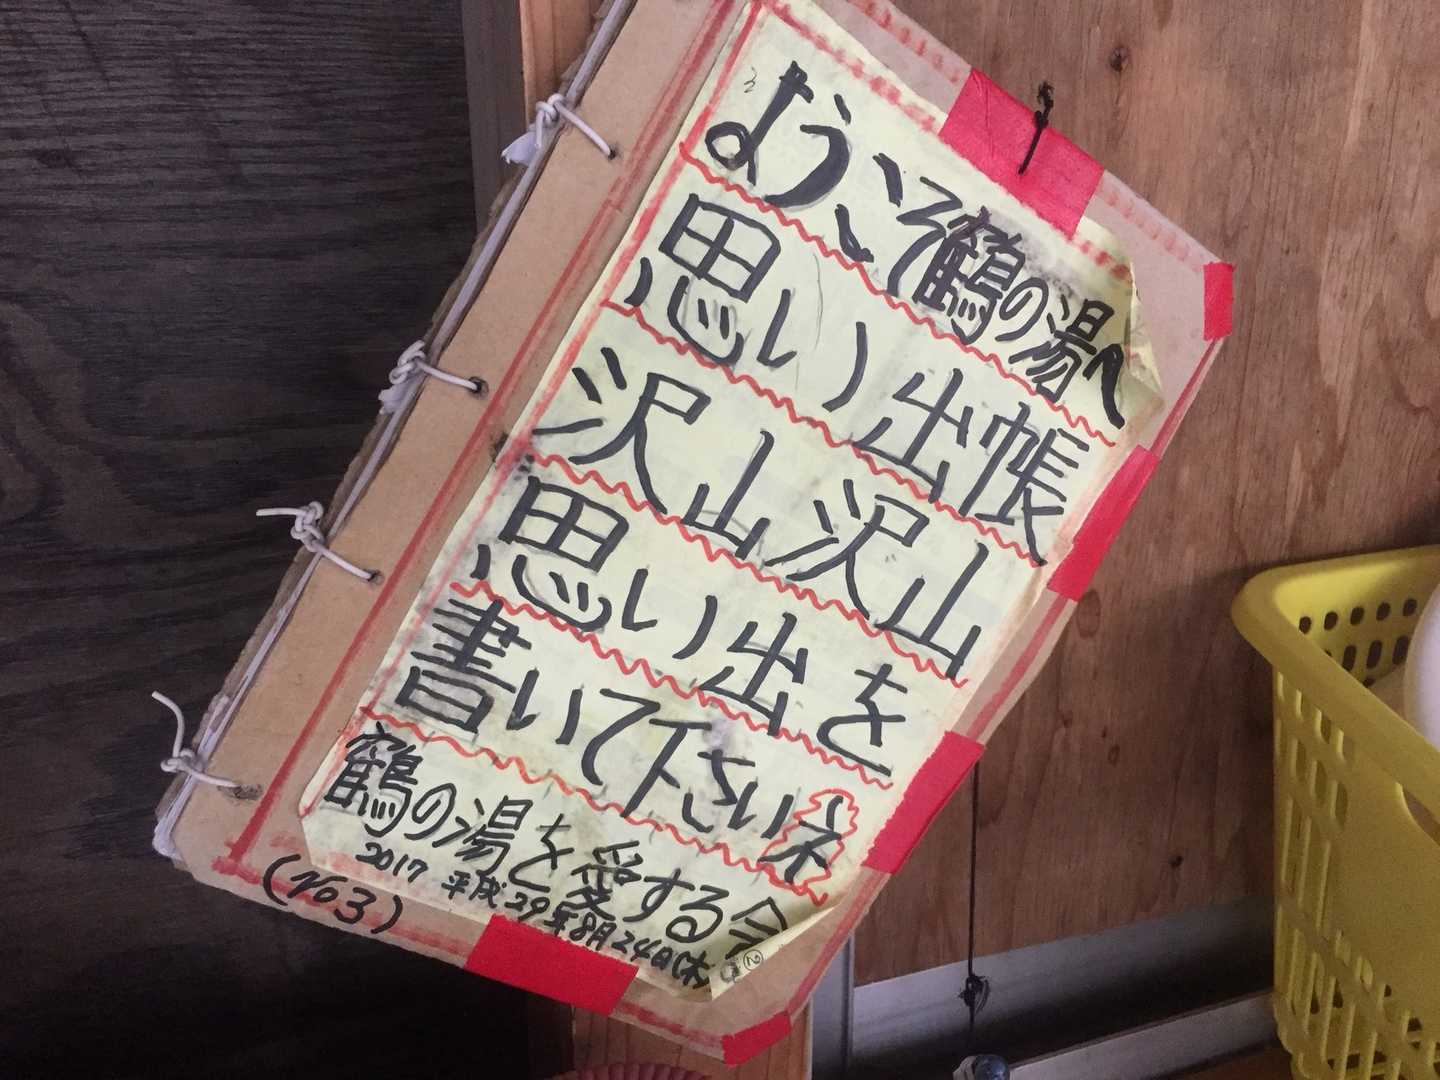 ようこそ鶴の湯へ
思い出帳
沢山沢山
思い出を
書いて下さいネ
鶴の湯を愛する会
2017 平成29年8月24日(木)
②
(No3)